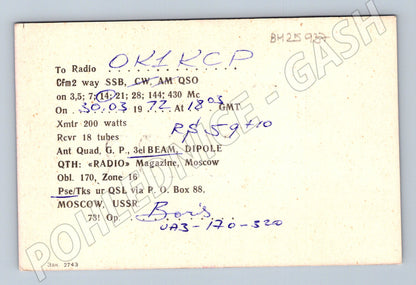 BH25937
To Radio OK1KCP
Cfm2 way SSB, CW, AM QSO
on 3,5; 7; 14; 21; 28; 144; 430 Mc
On 30.03 1972 At 1803 GMT
Xmtr 200 watts
Rcvr 18 tubes
RS 59+10
Ant Quad, G. P., 3el BEAM, DIPOLE
QTH: «RADIO» Magazine, Moscow
Obl. 170, Zone 16
Pse/Tks ur QSL via P. O. Box 88.
MOSCOW, USSR
73! Op Boris
UA3-170-320
Зак. 2743
POHLEDNICE - GASH